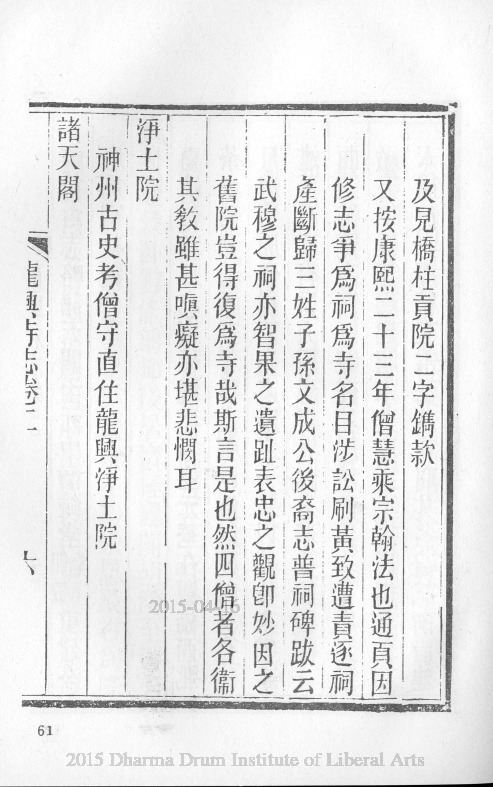 及見橋柱貢院二字鐫款
又按康熙二十三年僧慧乘宗翰法也通貢因
修志爭爲祠爲寺名日涉訟刷黃致遭責逐祠
產斷歸三姓子孫文成公後裔志普祠碑跋云
武穆之祠亦智果之遺趾表忠之觀卽妙因之
舊院豈得復爲寺哉斯言是也然四僧者各衞
其敎雖甚嗔癡亦堪悲憫耳
淨土院
神州古史考僧守直住龍興淨土院
諸天閣
龍興寺志卷二
六
61
2015-04-16
2015 Dharma Drum Institute of Liberal Arts